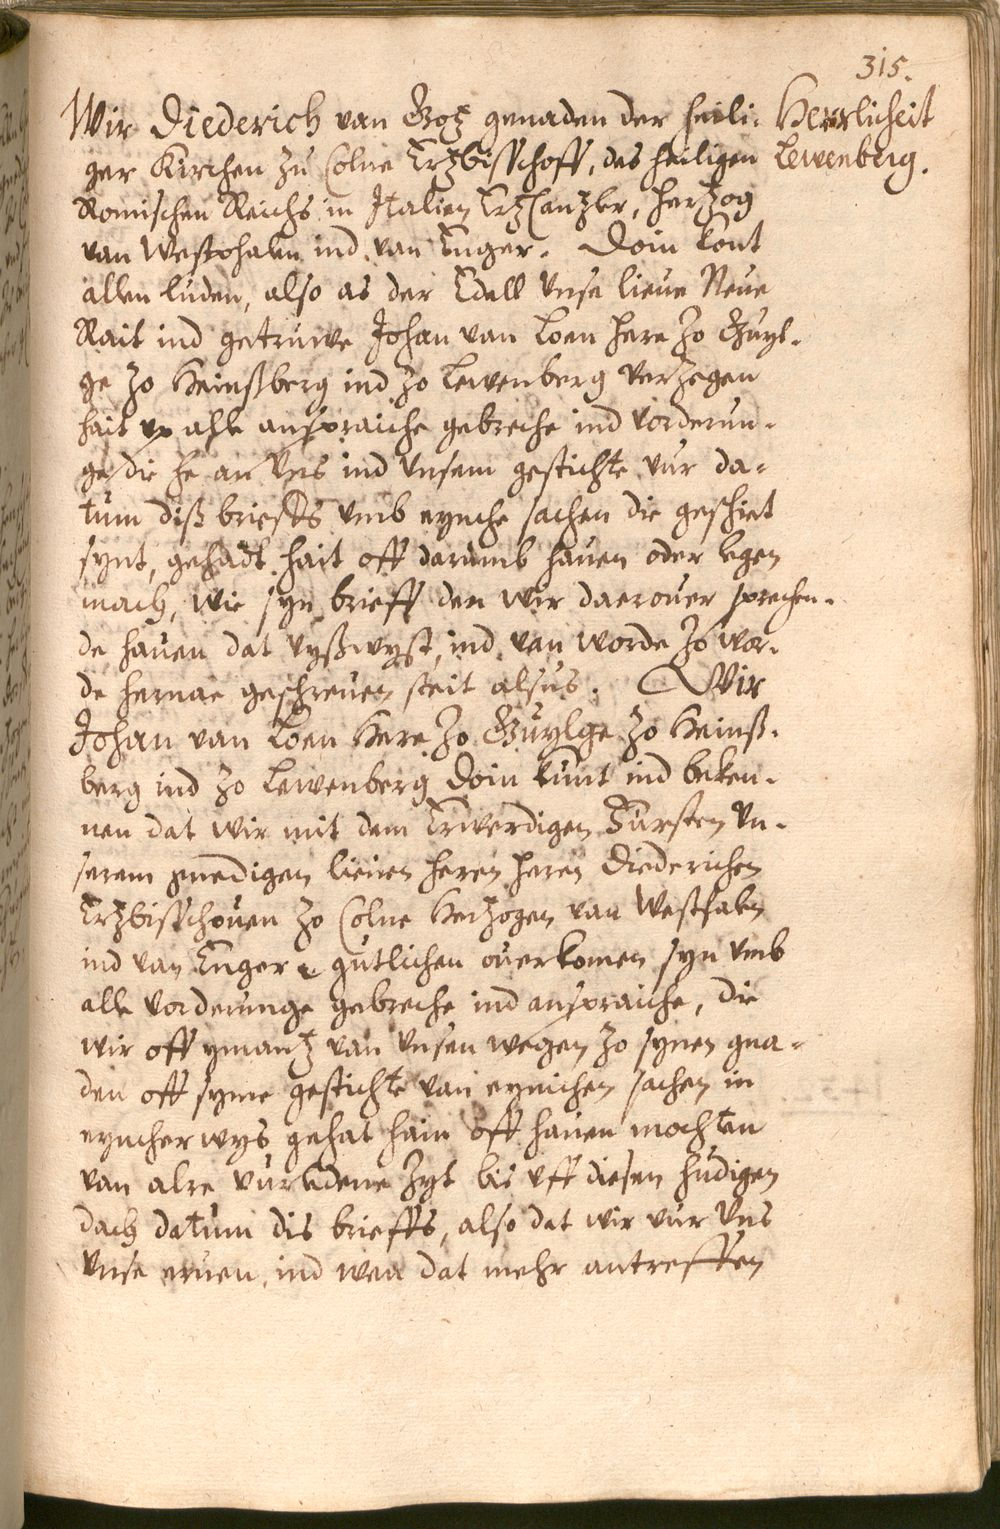 315.
Herrlicheit
Lewenberg.
Wir Diederich van Gotz genaden der heili-
ger Kirchen zu Colne Ertzbisschoff, des heiligen
Romischen Reichs in Italien Ertzcantzler, Hertzog
van Westphalen ind van Enger. Doin kont
allen luden, also as der Edell unse lieue Neue
Rait ind getruwe Johan van Loen here zo Guyl-
ge zo Heinssberg ind zo Lewenberg verzegen
hait up alle anspraiche gebreche ind vorderun-
ge die he an uns ind unsem gestichte vur da-
tum diß brieffs umb eynche sachen die geschiet
synt, gehadt hait off darumb hauen oder kegen
mach, wie syn brieff den wir daerouer sprechen-
de hauen dat vyßwyst, ind van worde zo wor-
de hernae geschreuen steit alsus. Wir
Johan van Loen Here zo Guylge zo Heinß-
berg ind zo Lewenberg doin kunt ind beken-
nen dat wir mit dem Erwerdigen Fursten un-
serem gnedigen lieuen heren heren Diederichen
Ertzbisschouen zo Colne Hertzogen van Westfalen
ind van Enger gutlichen ouerkomen syn umb
alle vorderunge gebreche ind anspraiche, die
wir off ymantz van unsen wegen zo synen gna-
den off syme gestichte van eynichen sachen in
eyncher wys gehat hain off hauen mochten
van alre vurledene zyt bis uff diesen hudigen
dach datum dis brieffs, also dat wir vur uns
unse eruen, ind wen dat mehr antreffen